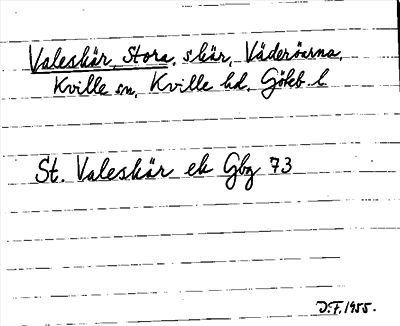 Valeskär, Stora, skär, Väderöarna,
Kville sn, Kville hd, Göteb. l
St. Valeskär ek Gbg 73
D.F. 1955.